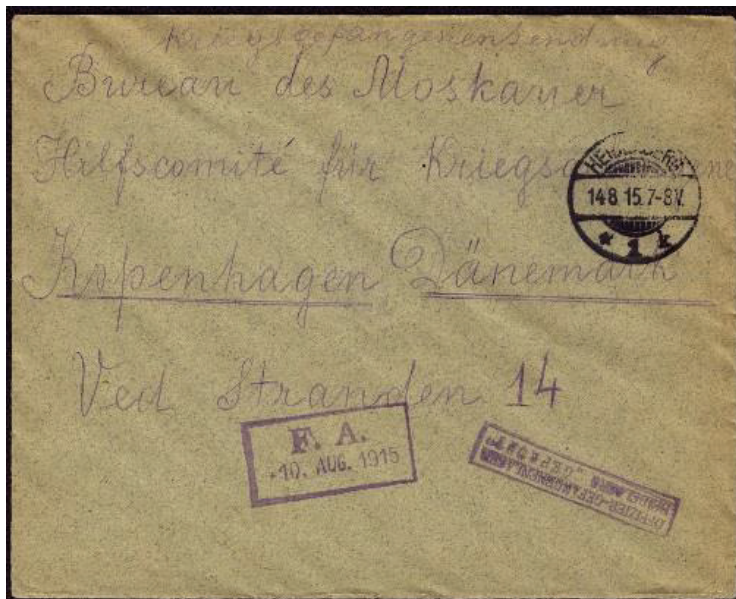 Kriegsgefangenensendung
Bureau des Moskauer
Hilfscomité für
HEIDELBERG
14.8.15.7-8V.
* 1 k
Kopenhagen Dänemark
Ved Stranden 14
F. A.
10. AUG. 1915
OFFIZIER-GEFANGENENLAGER
"GEPRÜFT"